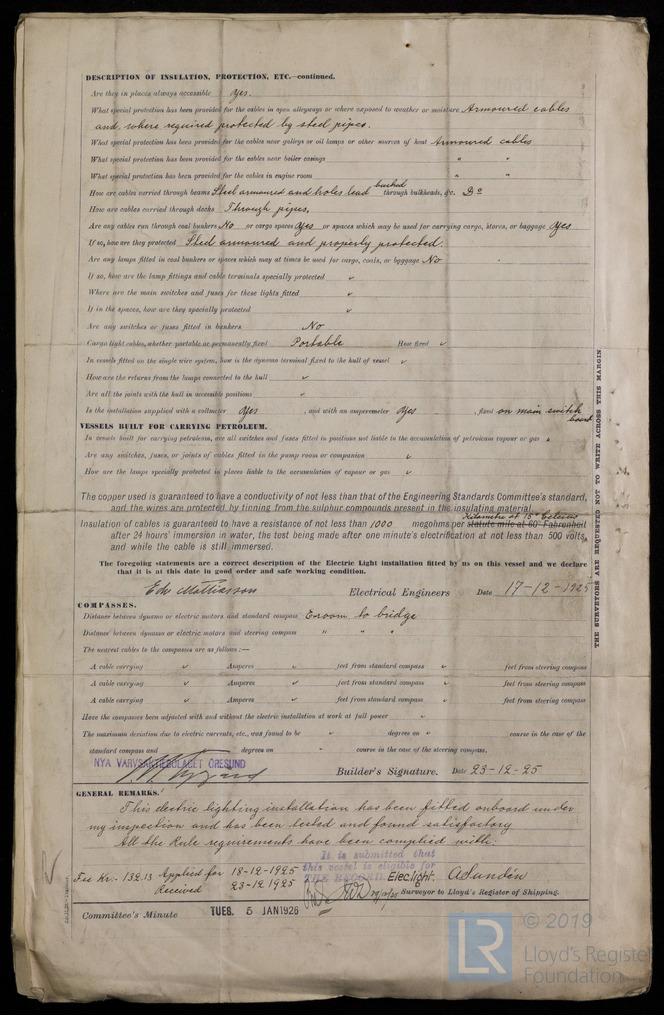 DESCRIPTION OF INSULATION, PROTECTION, ETC.—continued.
Are they in places always accessible Yes.
What special protection has been provided for the cables in open alleyways or where exposed to weather or moisture Armoured cables
and, where required protected by steel pipes.
What special protection has been provided for the cables near galleys or oil lamps or other sources of heat Armoured cables
What special protection has been provided for the cables near boiler casings " "
What special protection has been provided for the cables in engine room " "
How are cables carried through beams Steel armoured and holes lead bushed through bulkheads, &c. Do
How are cables carried through decks Through pipes.
Are any cables run through coal bunkers No or cargo spaces Yes or spaces which may be used for carrying cargo, stores, or baggage Yes
If so, how are they protected Steel armoured and properly protected.
Are any lamps fitted in coal bunkers or spaces which may at times be used for cargo, coals, or baggage No
If so, how are the lamp fittings and cable terminals specially protected ✓
Where are the main switches and fuses for these lights fitted ✓
If in the spaces, how are they specially protected ✓
Are any switches or fuses fitted in bunkers No
Cargo light cables, whether portable or permanently fixed Portable How fixed ✓
In vessels fitted on the single wire system, how is the dynamo terminal fixed to the hull of vessel ✓
How are the returns from the lamps connected to the hull ✓
Are all the joints with the hull in accessible positions ✓
Is the installation supplied with a voltmeter Yes , and with an amperemeter Yes , fixed on main switch board
VESSELS BUILT FOR CARRYING PETROLEUM.
In vessels built for carrying petroleum, are all switches and fuses fitted in positions not liable to the accumulation of petroleum vapour or gas ✓
Are any switches, fuses, or joints of cables fitted in the pump room or companion ✓
How are the lamps specially protected in places liable to the accumulation of vapour or gas ✓
The copper used is guaranteed to have a conductivity of not less than that of the Engineering Standards Committee's standard,
and the wires are protected by tinning from the sulphur compounds present in the insulating material.
Insulation of cables is guaranteed to have a resistance of not less than 1000 megohms per statute mile at 60° Fahrenheit Kilometre at 15° Celsius
after 24 hours' immersion in water, the test being made after one minute's electrification at not less than 500 volts,
and while the cable is still immersed.
The foregoing statements are a correct description of the Electric Light installation fitted by us on this vessel and we declare
that it is at this date in good order and safe working condition.
Edv Mattiasson Electrical Engineers Date 17-12-1925
COMPASSES.
Distance between dynamo or electric motors and standard compass E-room to bridge
Distance between dynamo or electric motors and steering compass " " "
The nearest cables to the compasses are as follows:—
A cable carrying ✓ Amperes ✓ feet from standard compass ✓ feet from steering compass
A cable carrying ✓ Amperes ✓ feet from standard compass ✓ feet from steering compass
A cable carrying ✓ Amperes ✓ feet from standard compass ✓ feet from steering compass
Have the compasses been adjusted with and without the electric installation at work at full power ✓
The maximum deviation due to electric currents, etc., was found to be ✓ degrees on ✓ course in the case of the
standard compass and degrees on ✓ course in the case of the steering compass.
NYA VARVSAKTIEBOLAGET ÖRESUND
Builder's Signature. Date 23-12-25
GENERAL REMARKS.
This electric lighting installation has been fitted onboard under
my inspection and has been tested and found satisfactory
All the Rule requirements have been complied with.
It is submitted that
this vessel is eligible for
THE RECORD. Elec. light.
Fee Kr:- 132.13 Applied for 18-12-1925
Received 23-12 1925
A Lundén
Surveyor to Lloyd's Register of Shipping.
Committee's Minute TUES. 5 JAN 1926
THE SURVEYORS ARE REQUESTED NOT TO WRITE ACROSS THIS MARGIN
LR
© 2019
Lloyd's Register
Foundation